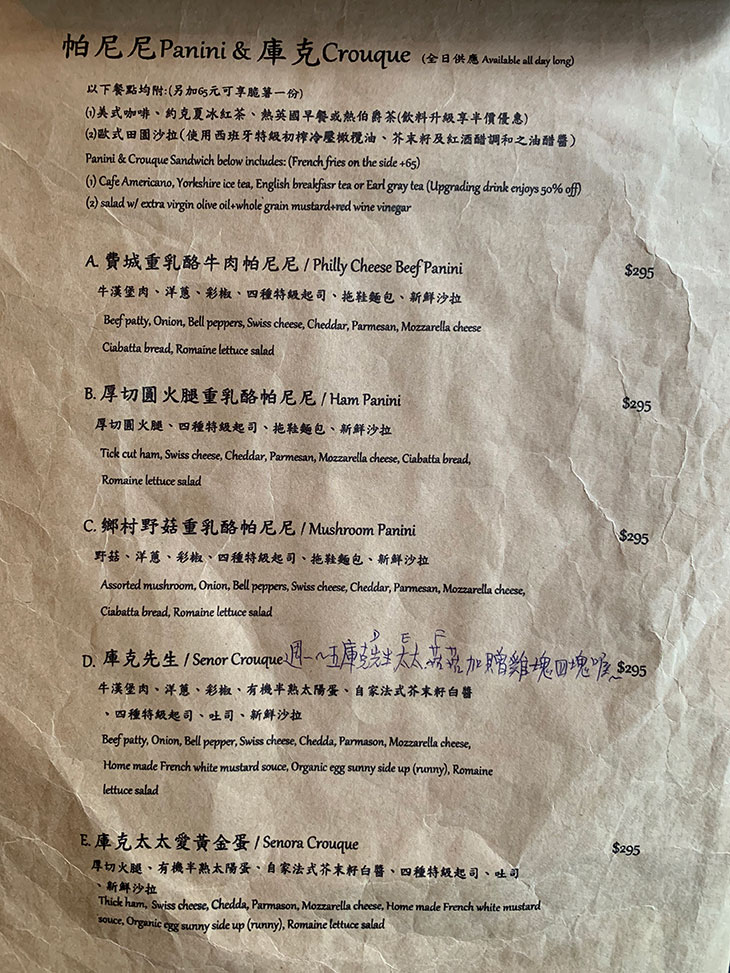 帕尼尼Panini & 庫克Crouque (全日供應 Available all day long)
以下餐點均附:(另加65元可享脆薯一份)
(1)美式咖啡、約克夏冰紅茶、熱英國早餐或熱伯爵茶(飲料升級享半價優惠)
(2)歐式田園沙拉(使用西班牙特級初榨冷壓橄欖油、芥末籽及紅酒醋調和之油醋醬)
Panini & Crouque Sandwich below includes: (French fries on the side +65)
(1) Cafe Americano, Yorkshire ice tea, English breakfasr tea or Earl gray tea (Upgrading drink enjoys 50% off)
(2) salad w/ extra virgin olive oil+whole grain mustard+red wine vinegar
A. 費城重乳酪牛肉帕尼尼 / Philly Cheese Beef Panini $295
牛漢堡肉、洋蔥、彩椒、四種特級起司、拖鞋麵包、新鮮沙拉
Beef patty, Onion, Bell peppers, Swiss cheese, Cheddar, Parmesan, Mozzarella cheese
Ciabatta bread, Romaine lettuce salad
B. 厚切圓火腿重乳酪帕尼尼 / Ham Panini $295
厚切圓火腿、四種特級起司、拖鞋麵包、新鮮沙拉
Tick cut ham, Swiss cheese, Cheddar, Parmesan, Mozzarella cheese, Ciabatta bread,
Romaine lettuce salad
C. 鄉村野菇重乳酪帕尼尼 / Mushroom Panini $295
野菇、洋蔥、彩椒、四種特級起司、拖鞋麵包、新鮮沙拉
Assorted mushroom, Onion, Bell peppers, Swiss cheese, Cheddar, Parmesan, Mozzarella cheese,
Ciabatta bread, Romaine lettuce salad
D E F
D. 庫克先生 / Senor Crouque 週一~五庫克先生太太菇菇加贈雞塊四塊喔~ $295
牛漢堡肉、洋蔥、彩椒、有機半熟太陽蛋、自家法式芥末籽白醬
、四種特級起司、吐司、新鮮沙拉
Beef patty, Onion, Bell pepper, Swiss cheese, Chedda, Parmason, Mozzarella cheese,
Home made French white mustard souce, Organic egg sunny side up (runny), Romaine
lettuce salad
E. 庫克太太愛黃金蛋 / Senora Crouque $295
厚切火腿、有機半熟太陽蛋、自家法式芥末籽白醬、四種特級起司、吐司
、新鮮沙拉
Thick ham, Swiss cheese, Chedda, Parmason, Mozzarella cheese, Home made French white mustard
souce, Organic egg sunny side up (runny), Romaine lettuce salad